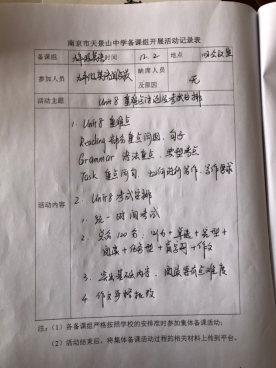 南京市天景山中学备课组开展活动记录表
备课组 九年级英语 时间 12.2 地点
参加人员 九年级英语 缺席人员及原因 无
活动主题 Unit 8 重难点 考试安排
活动内容
1. Unit 8 重难点
Reading 部分重点词组、句子
Grammar 语法重点、典型考点
Task 重点词句、如何进行写作、写作要求
2. Unit 8 考试安排
1. 统一时间考试
2. 总分120分：听力+单选+完型+
阅读+任务型+首字母+作文
3. 基础内容，阅读 难度
4. 作文
注：（1）各备课组严格按照学校的安排准时参加集体备课活动；
（2）活动结束后，将集体备课活动过程的相关材料上传到平台。